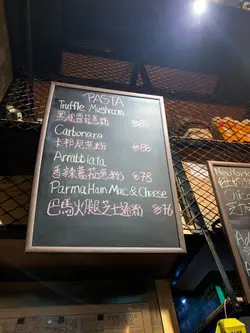 PASTA
Truffle Mushroom
黑松露菇意粉 $88
Carbonara
卡邦尼意粉 $88
Arrabbiata
香辣蕃茄意粉 $78
Parma Ham Mac & Cheese
巴馬火腿芝士通粉 $76